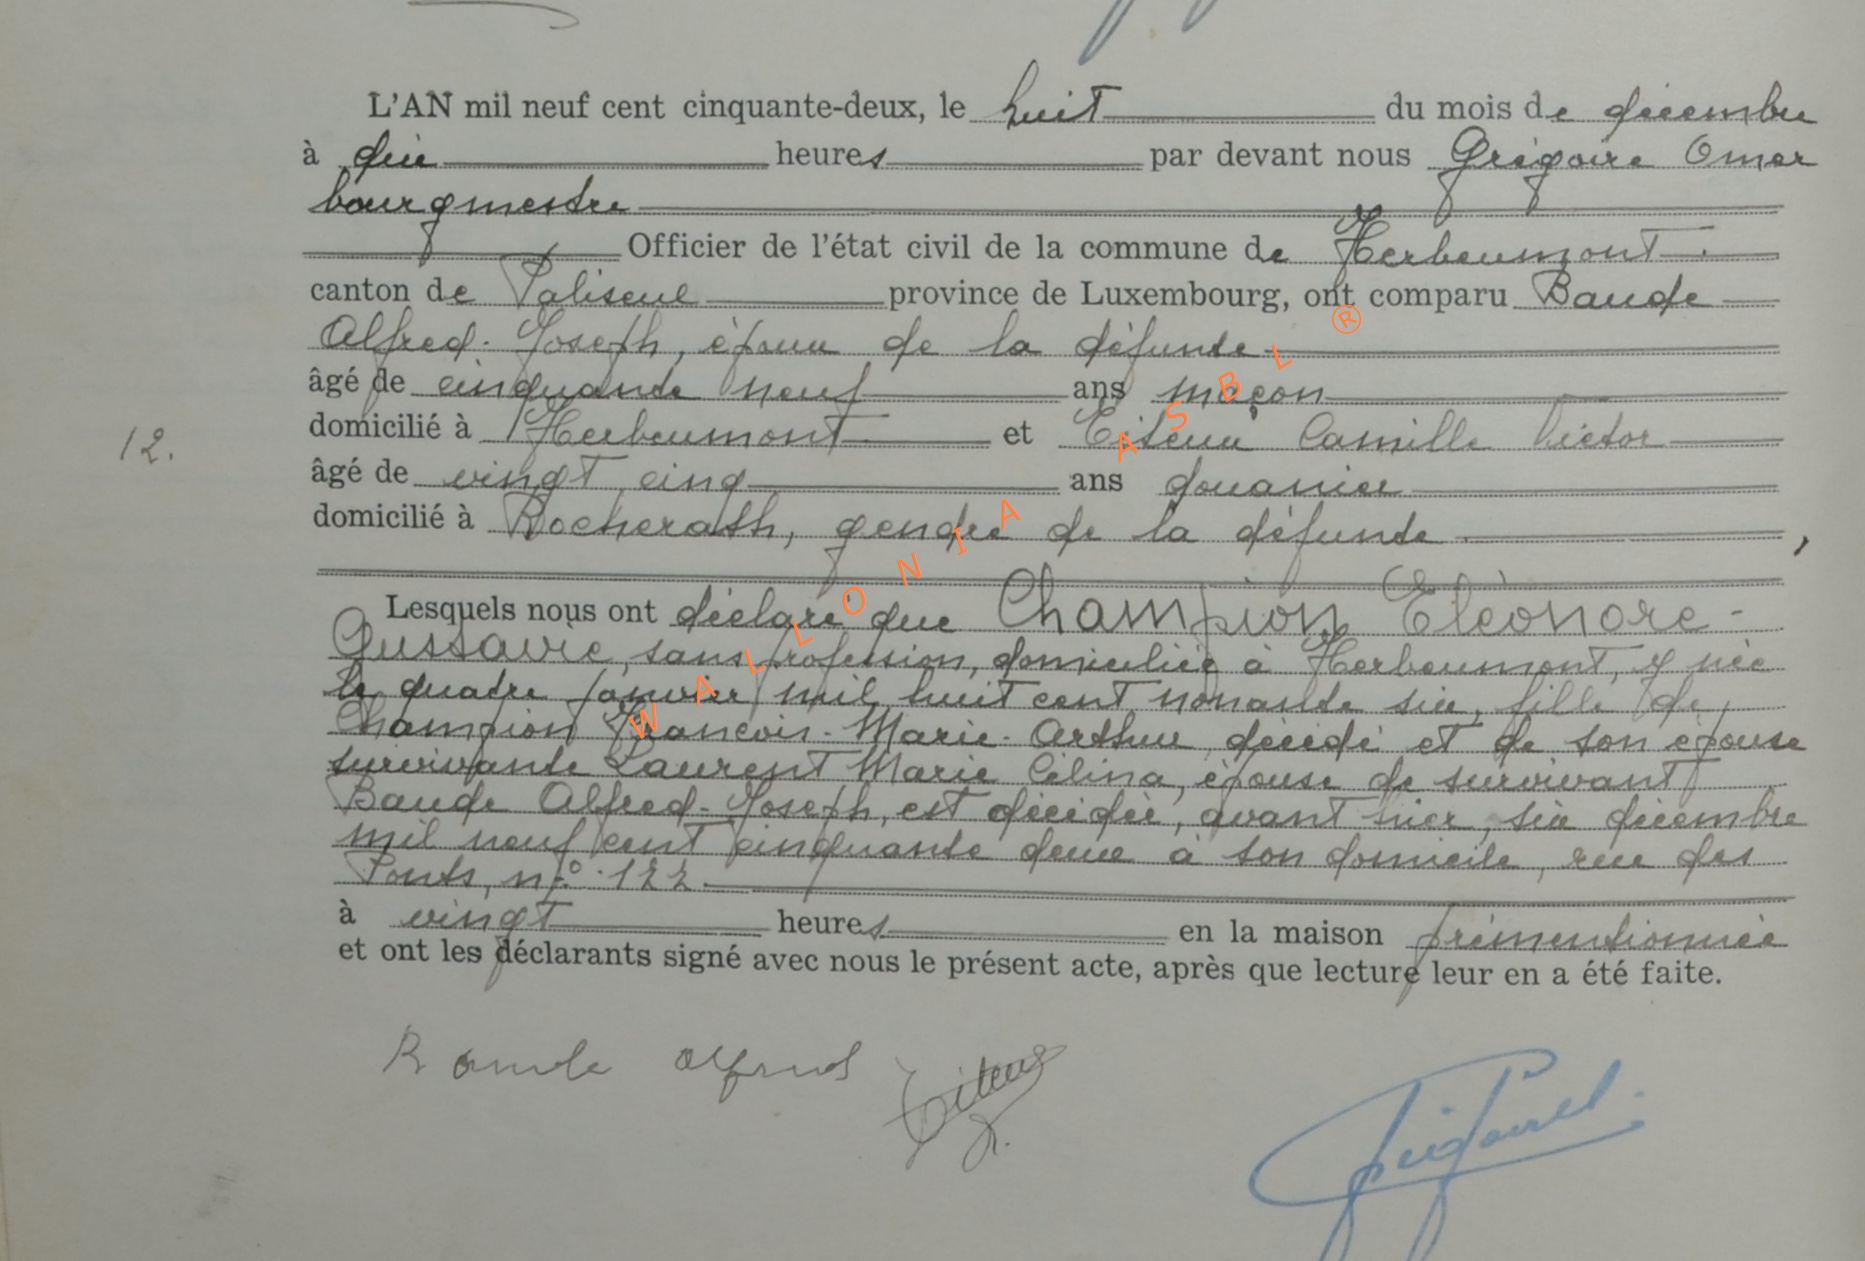 L'AN mil neuf cent cinquante-deux, le huit du mois de décembre
à dix heures par devant nous Grégoire Omer
bourgmestre
Officier de l'état civil de la commune de Herbeumont
canton de Paliseul province de Luxembourg, ont comparu Baude
Alfred-Joseph, époux de la défunte
âgé de cinquante neuf ans maçon
domicilié à Herbeumont et Camille Victor
12.
âgé de vingt cinq ans douanier
domicilié à Rocherath, gendre de la défunte,
Lesquels nous ont déclaré que Champion Eléonore-
Gustavie, sans profession, domiciliée à Herbeumont, y née
le quatre janvier mil huit cent nonante six, fille de
Champion François-Marie-Arthur décédé et de son épouse
survivante Laurent Marie Célina, épouse de survivant
Baude Alfred-Joseph, est décédée, avant hier, six décembre
mil neuf cent cinquante deux à son domicile, rue des
Ponts, n° 122.
à vingt heures en la maison prémentionnée
et ont les déclarants signé avec nous le présent acte, après que lecture leur en a été faite.
Baude Alfred
WALLONIA ASBL ®